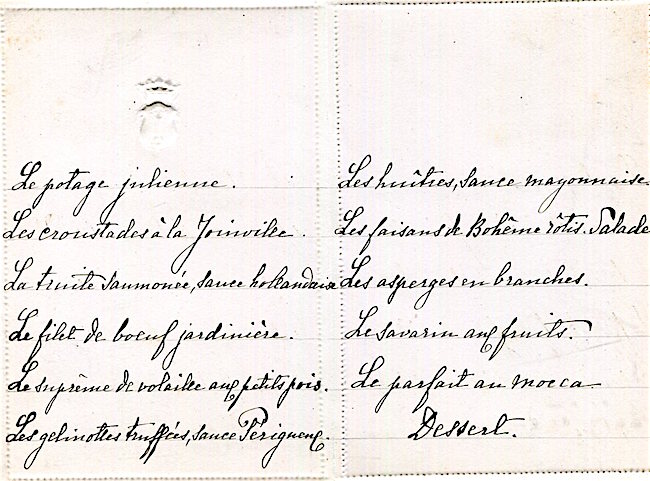 Le potage julienne.
Les croustades à la Joinville.
La truite saumonée, sauce hollandaise
Le filet de boeuf jardinière.
Le suprême de volaille aux petits pois.
Les gelinottes truffées, sauce Périgueux.
Les huîtres, sauce mayonnaise.
Les faisans de Bohême rôtis. Salade
Les asperges en branches.
Le savarin aux fruits.
Le parfait au mocca
Dessert.